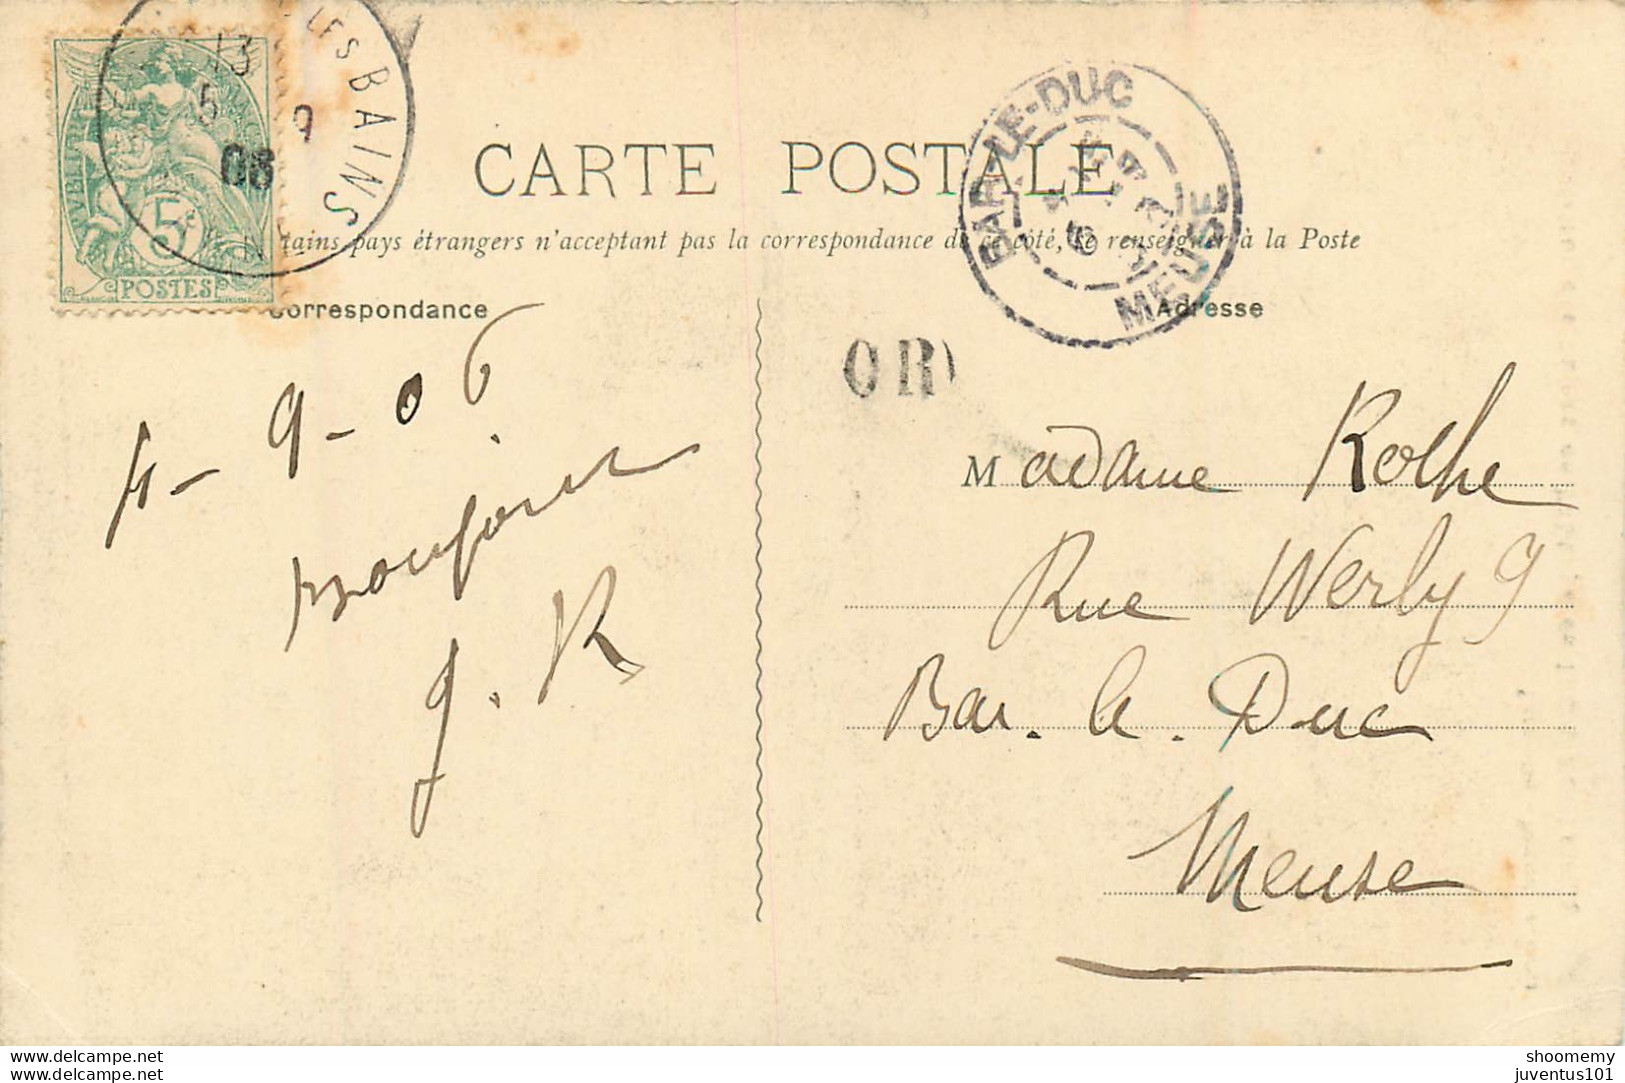 LES BAINS
13
5 9
06
POSTES
5
CARTE POSTALE
BAR-LE-DUC
MEUSE
tains pays étrangers n'acceptant pas la correspondance de ce côté, se renseigner à la Poste
Correspondance
Adresse
OR
4-9-06
J. R
Madame Rothe
Rue Werly 9
Bar. le. Duc
Meuse
www.delcampe.net
www.delcampe.net
shoomemy
juventus101